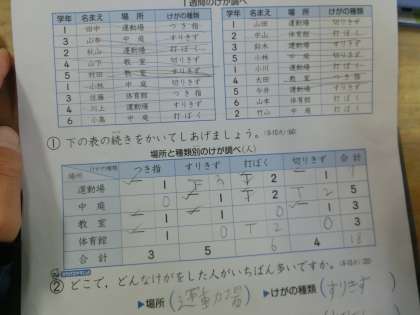 1週間のけが調べ
学年 名まえ 場所 けがの種類
1 田中 運動場 つき指
3 山本 中庭 すりきず
2 秋山 運動場 打ぼく
4 山下 教室 切りきず
5 村田 運動場 すりきず
1 小林 中庭 切りきず
3 佐藤 体育館 つき指
4 川上 運動場 すりきず
6 小島 中庭 打ぼく
学年 名まえ 場所 けがの種類
1 山田 運動場 切りきず
2 中山 体育館 打ぼく
3 鈴木 運動場 すりきず
5 小川 運動場 打ぼく
4 大田 教室 つき指
5 今井 運動場 すりきず
6 山本 体育館 打ぼく
2 竹山 中庭 切りきず
① 下の表の続きをかいてしあげましょう。
場所と種類別のけが調べ(人)
場所 けがの種類 つき指 すりきず 打ぼく 切りきず 合計
運動場 1 2 1
中庭 0 1 2 5
教室 1 1 0 1 3
体育館 1 0 0 3
合計 3 5 6 4 18
② どこで、どんなけがをした人がいちばん多いですか。
▶場所(運動場) ▶けがの種類(すりきず